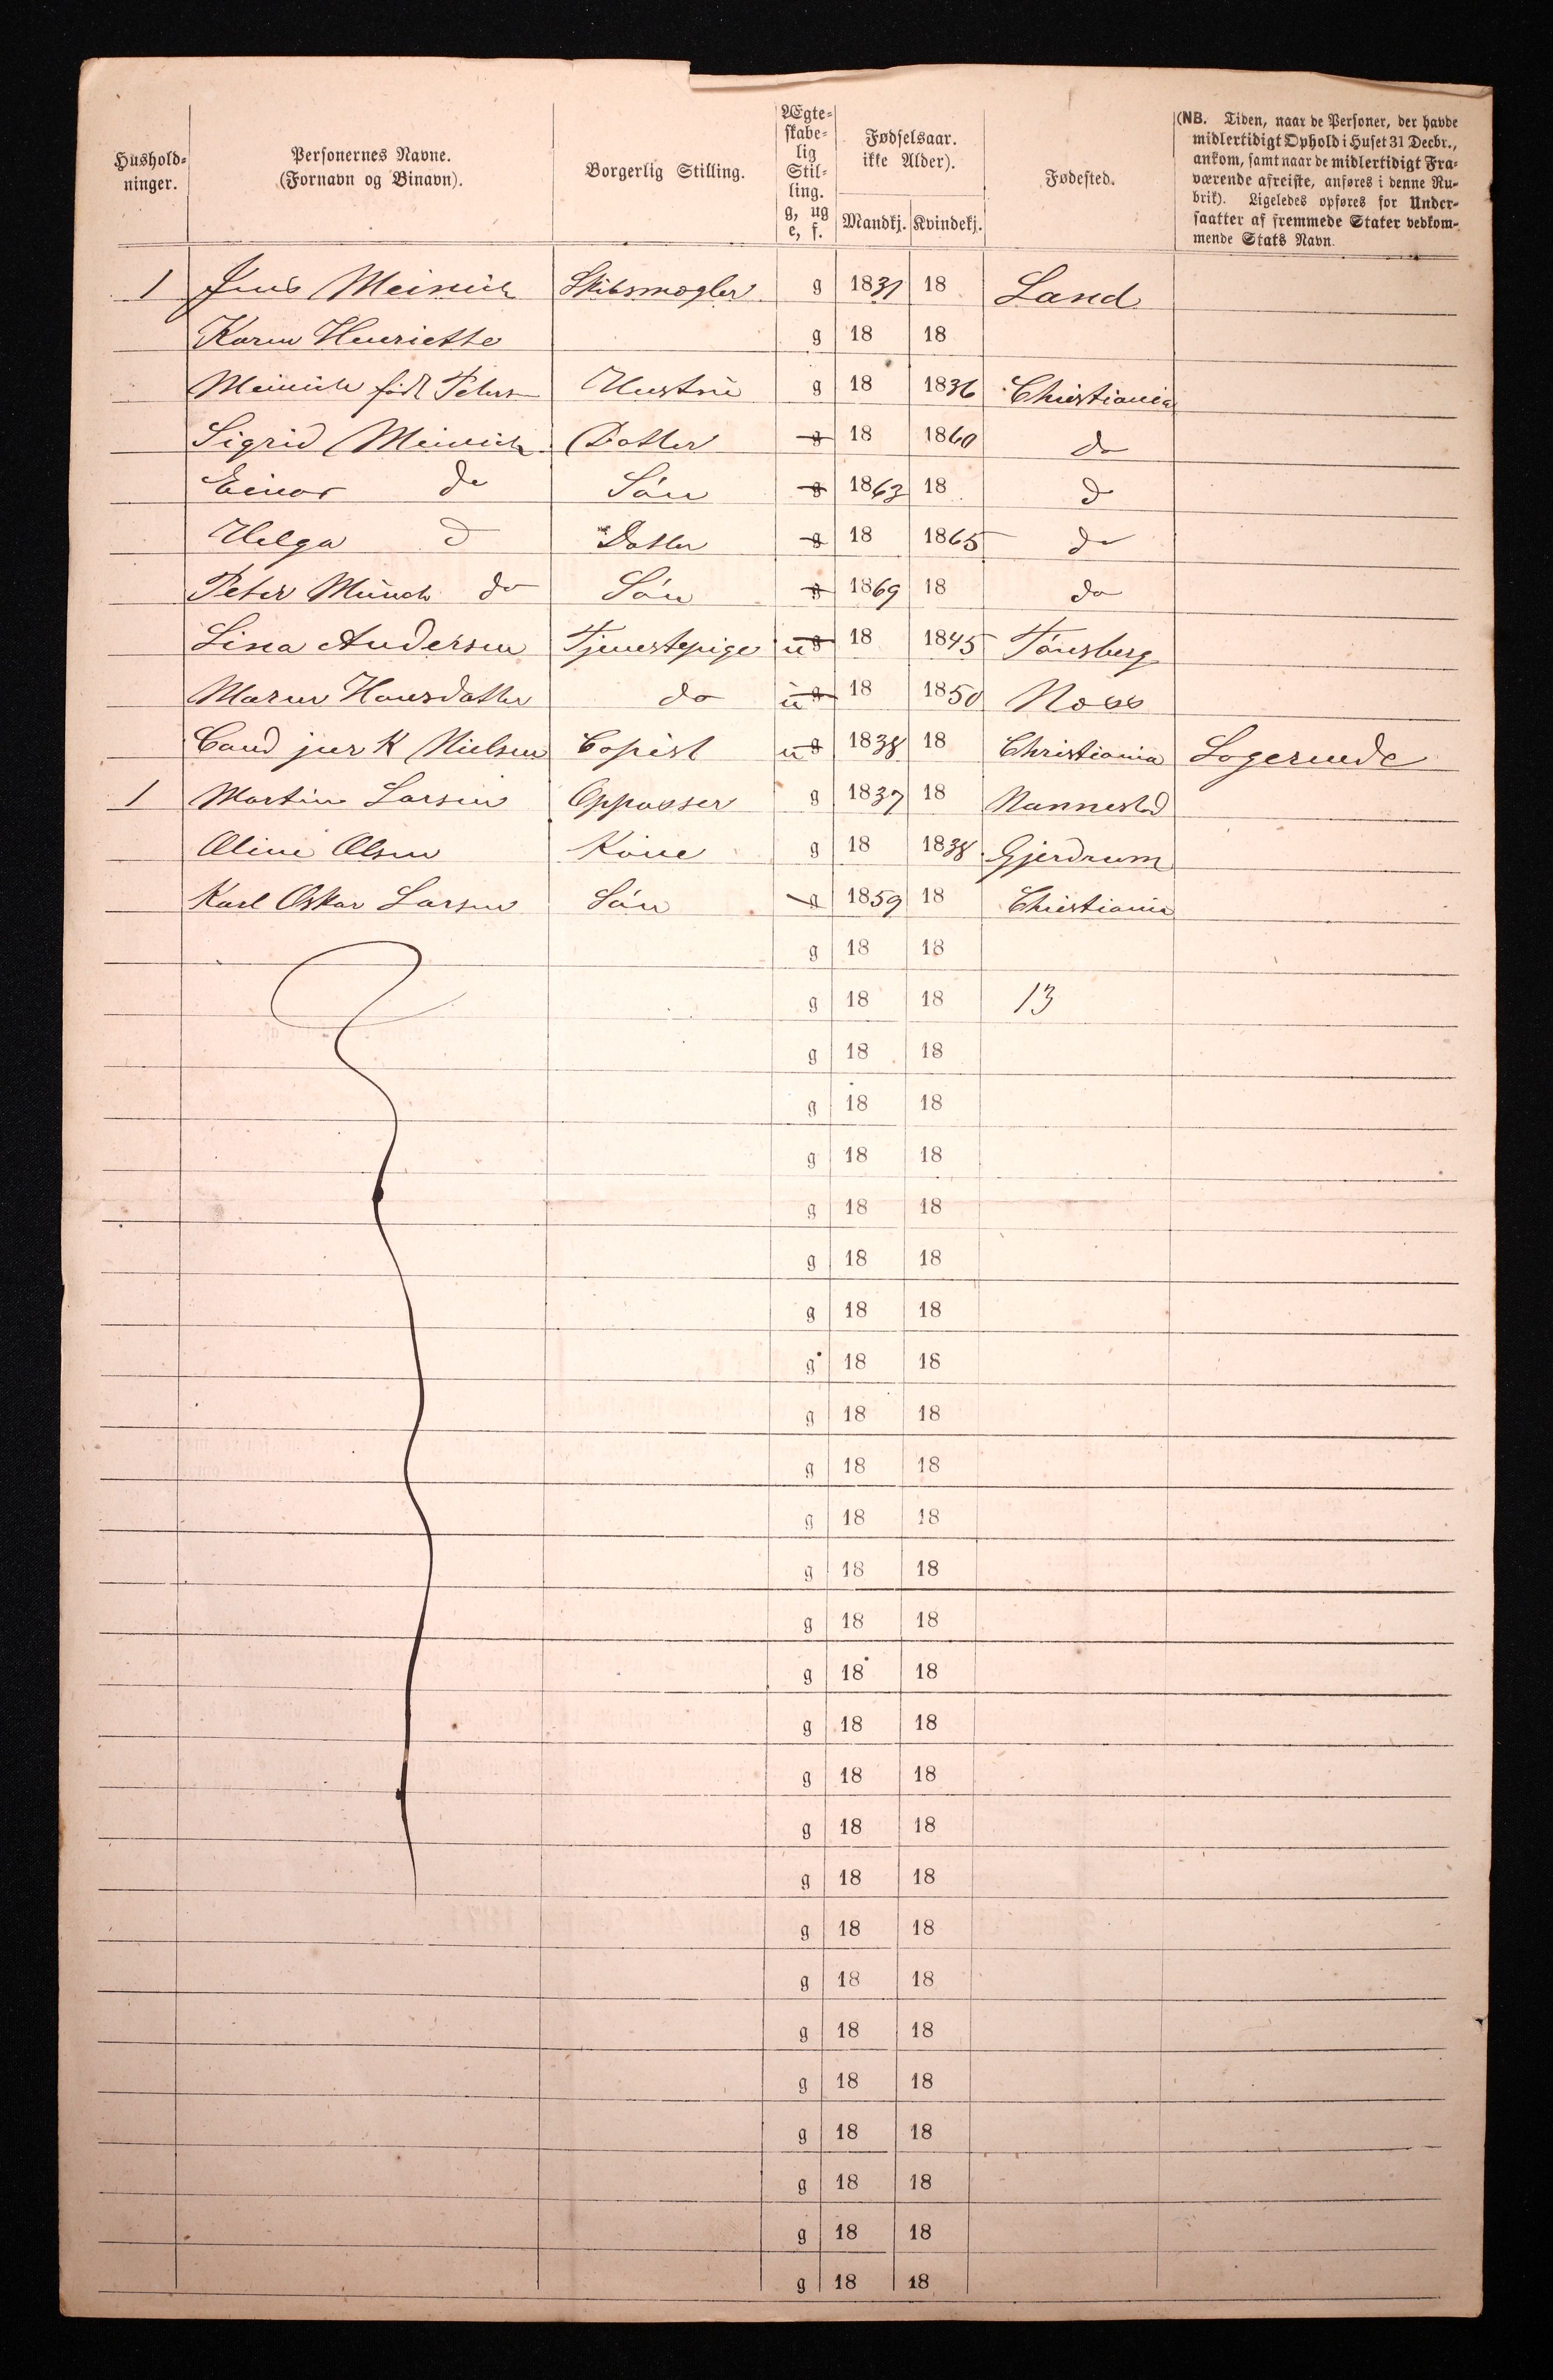 Hushold-
ninger.
Personernes Navne.
(Fornavn og Binavn).
Borgerlig Stilling.
Ægte-
skabe-
lig
Stil-
ling.
g, ug
e, f.
Fødselsaar.
ikke Alder).
Mandkj. Kvindekj.
Fødested.
(NB. Tiden, naar de Personer, der havde
midlertidigt Ophold i Huset 31 Decbr.,
ankom, samt naar de midlertidigt Fra-
værende afreiste, anføres i denne Ru-
brik). Ligeledes opføres for Under-
saatter af fremmede Stater vedkom-
mende Stats Navn.
1 Jens Meinich Skibsmægler g 1831 18 Land
Karen Henriette g 18 18
Meinich født Petersen Hustru g 18 1836 Christiania
Sigrid Meinich Datter g 18 1860 do
Einar do Søn g 1863 18 d
Helga d Datter g 18 1865 do
Peter Münch do Søn g 1869 18 do
Lina Andersen Tjenestepige u g 18 1845 Tønsberg
Maren Hansdatter do u g 18 1850 Moss
Cand jur K Nielsen Copist u g 1838 18 Christiania Logerende
1 Martin Larsen Oppasser g 1837 18 Nannestad
Oline Olsen Kone g 18 1838 Gjerdrum
Karl Oskar Larsen Søn g 1859 18 Christiania
g 18 18
g 18 18 13
g 18 18
g 18 18
g 18 18
g 18 18
g 18 18
g 18 18
g 18 18
g 18 18
g 18 18
g 18 18
g 18 18
g 18 18
g 18 18
g 18 18
g 18 18
g 18 18
g 18 18
g 18 18
g 18 18
g 18 18
g 18 18
g 18 18
g 18 18
g 18 18
g 18 18